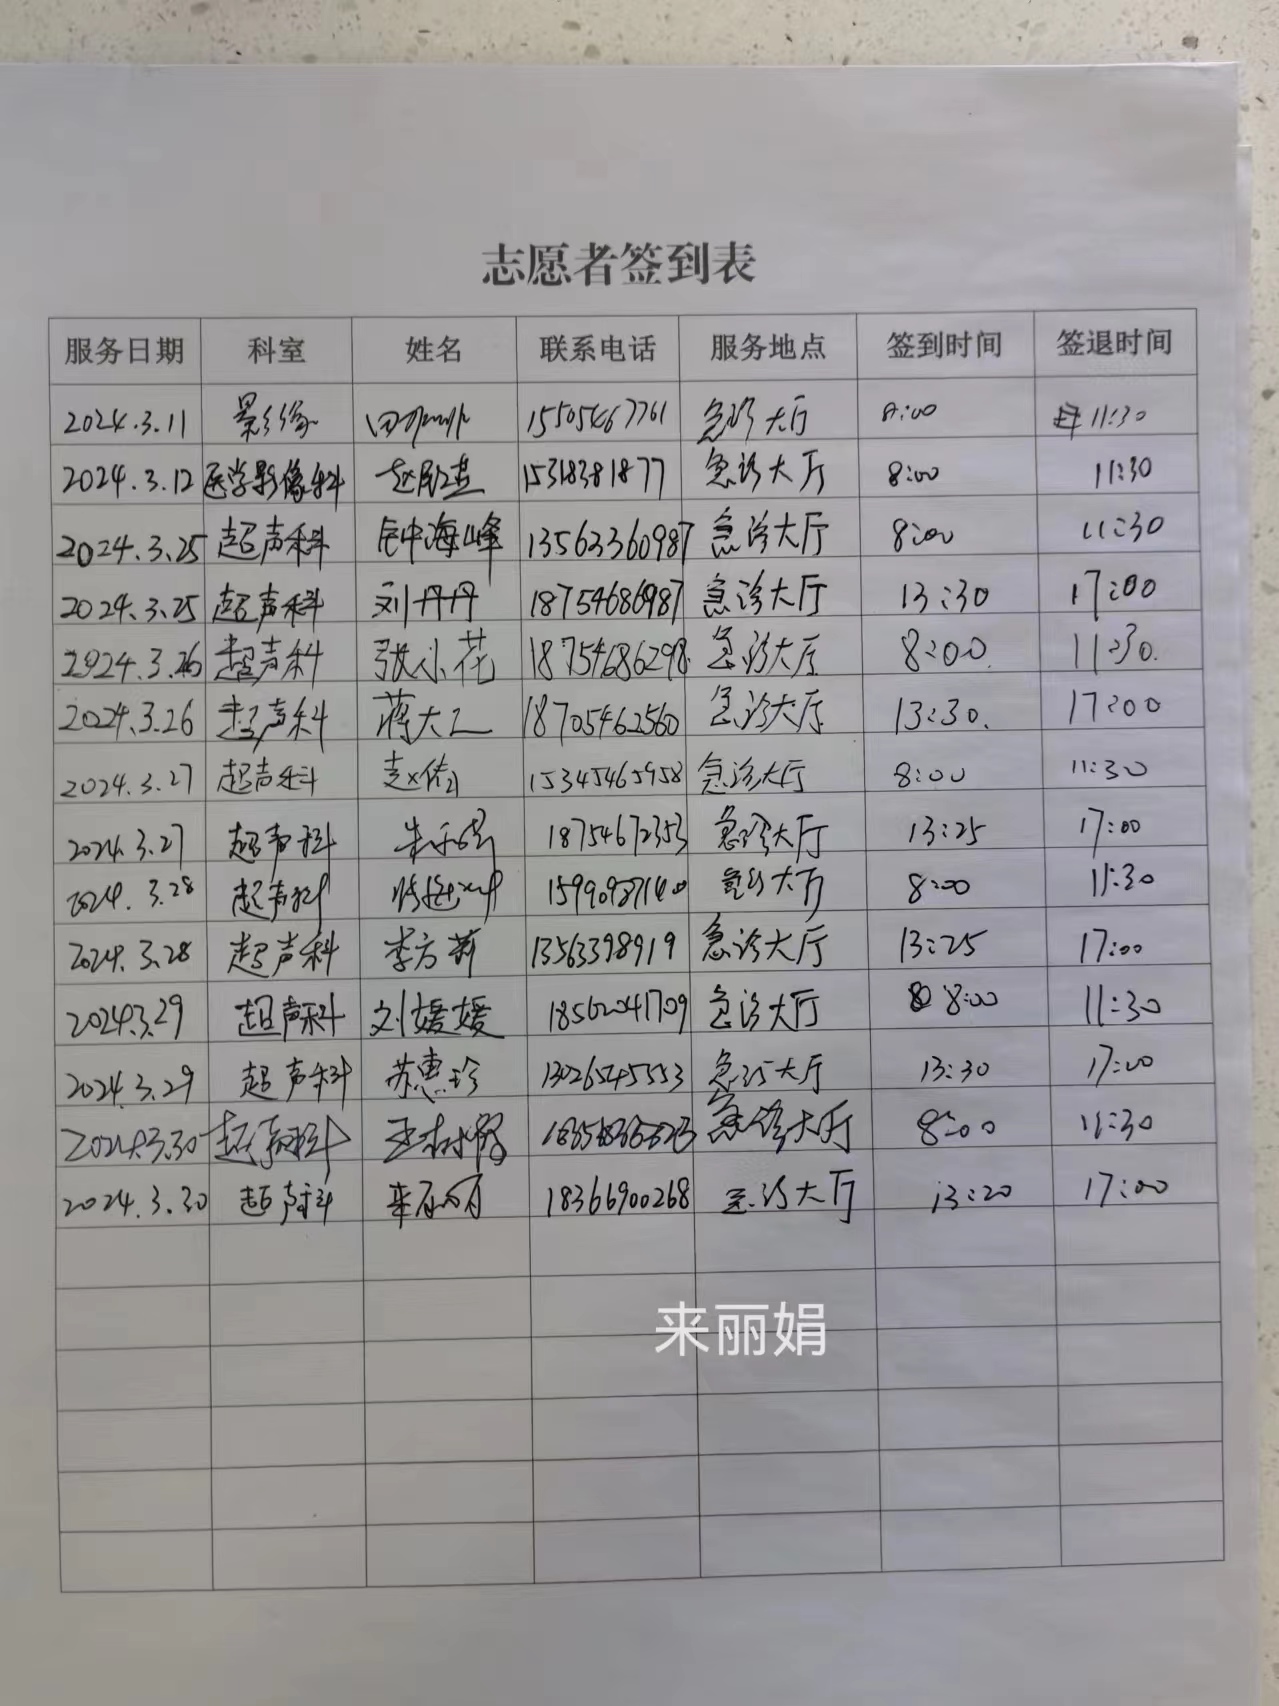 志愿者签到表
服务日期 科室 姓名 联系电话 服务地点 签到时间 签退时间
2024.3.11 影像 15505467761 急诊大厅 8:00 11:30
2024.3.12 医学影像科 15318381877 急诊大厅 8:00 11:30
2024.3.25 超声科 钟海峰 13563360987 急诊大厅 8:00 11:30
2024.3.25 超声科 刘丹丹 18754686987 急诊大厅 13:30 17:00
2024.3.26 超声科 张小花 18754686298 急诊大厅 8:00 11:30
2024.3.26 超声科 蒋大乙 18705462560 急诊大厅 13:30 17:00
2024.3.27 超声科 15345465958 急诊大厅 8:00 11:30
2024.3.27 超声科 18754672353 急诊大厅 13:25 17:00
2024.3.28 超声科 15990987140 急诊大厅 8:00 11:30
2024.3.28 超声科 李方莉 13563398919 急诊大厅 13:25 17:00
2024.3.29 超声科 刘媛媛 18562041709 急诊大厅 8:00 11:30
2024.3.29 超声科 苏惠珍 13026545553 急诊大厅 13:30 17:00
2024.3.30 超声科 急诊大厅 8:00 11:30
2024.3.30 超声科 来丽娟 18366900268 急诊大厅 13:20 17:00
来丽娟